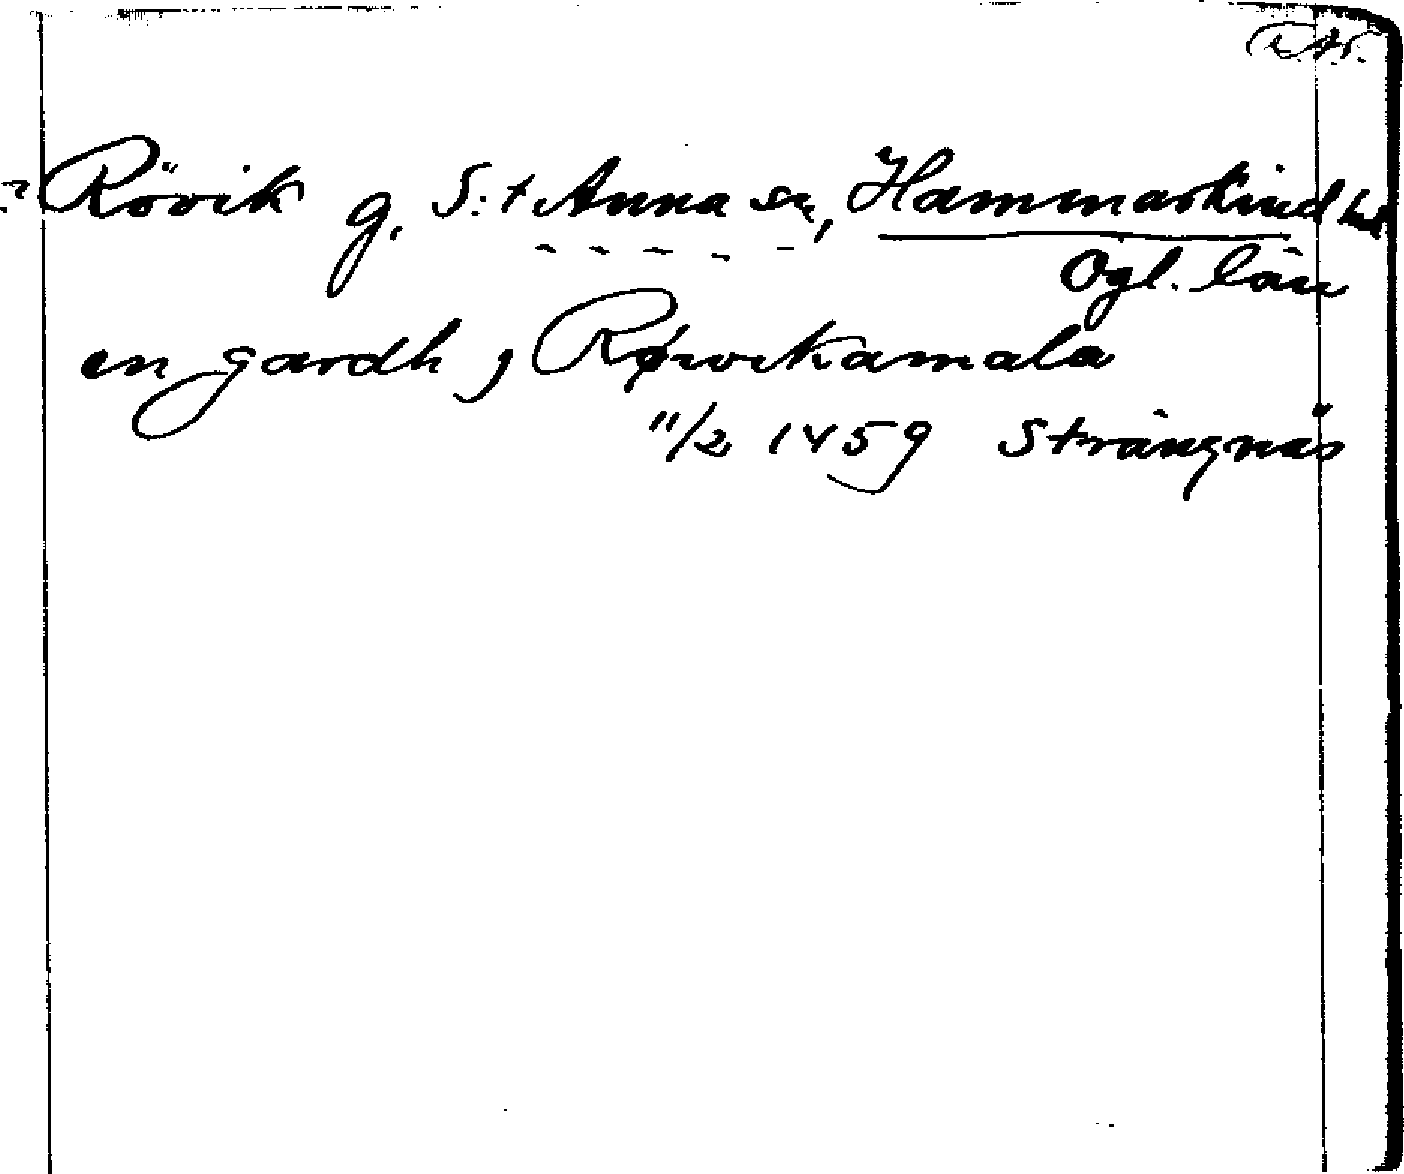 ? Rövik g. S:t Anna sn, Hammarkind hd
Ögl. län
en gardh j Rørvikamala
11/2 1459 Strängnäs